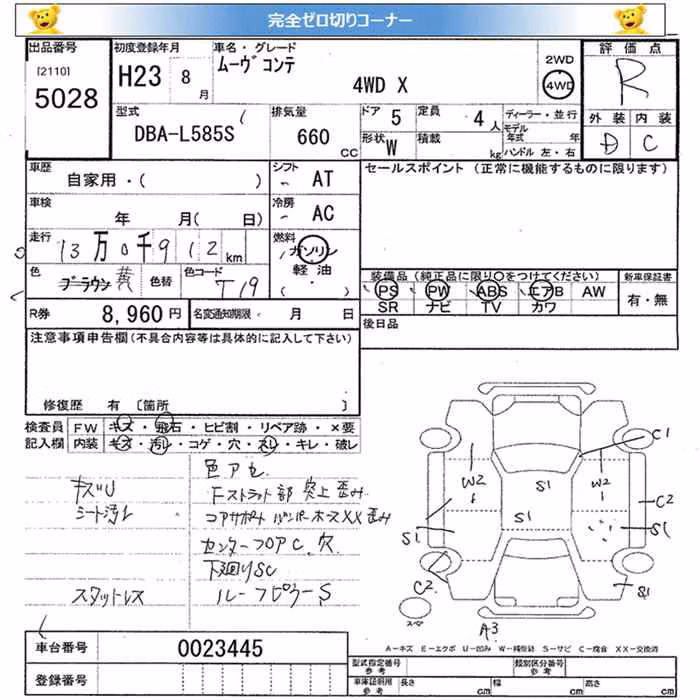 完全ゼロ切りコーナー
出品番号
[2110]
5028
初度登録年月
H23 8 月
車名・グレード
ムーヴ コンテ
4WD X
2WD
4WD
評価点
R
外装 内装
D C
型式
DBA-L585S
排気量
660 CC
ドア 5
定員 4 人
形状 W
積載 kg
ディーラー・並行
モデル年式 年
ハンドル 左・右
車歴
自家用・( )
シフト AT
セールスポイント (正常に機能するものに限ります)
車検
年 月( 日)
冷房 AC
走行
13万0千912 km
燃料
ガソリン
軽油
( ・ )
色
ブラウン 黄
色替
色コード
T19
装備品 (純正品に限り〇をつけてください)
PS PW ABS エアB AW
SR ナビ TV カワ
新車保証書
有・無
R券
8,960 円
名変通知期限 月 日
後日品
注意事項申告欄(不具合内容等は具体的に記入して下さい)
修復歴 有 [箇所 ]
検査員 FW キズ・飛石・ヒビ割・リペア跡・×要
記入欄 内装 キズ・汚レ・コゲ・穴・スレ・キレ・破レ
色アセ
キズU
Fストラット部 突上 歪み
シート汚レ
コアサポート バンパーホースXX歪み
センターフロアC、穴
下廻りSC
スタットレス
ルーフピラーS
C1
W2
W2
S1
C2
S1
S1
S1
C2
S1
スペア
A3
A−キズ E−エクボ U−凹み W−補修跡 S−サビ C−腐食 XX−交換済
車台番号
0023445
登録番号
型式指定番号 参考
類別区分番号 参考
車庫証明用 参考
長さ cm
幅 cm
高さ cm